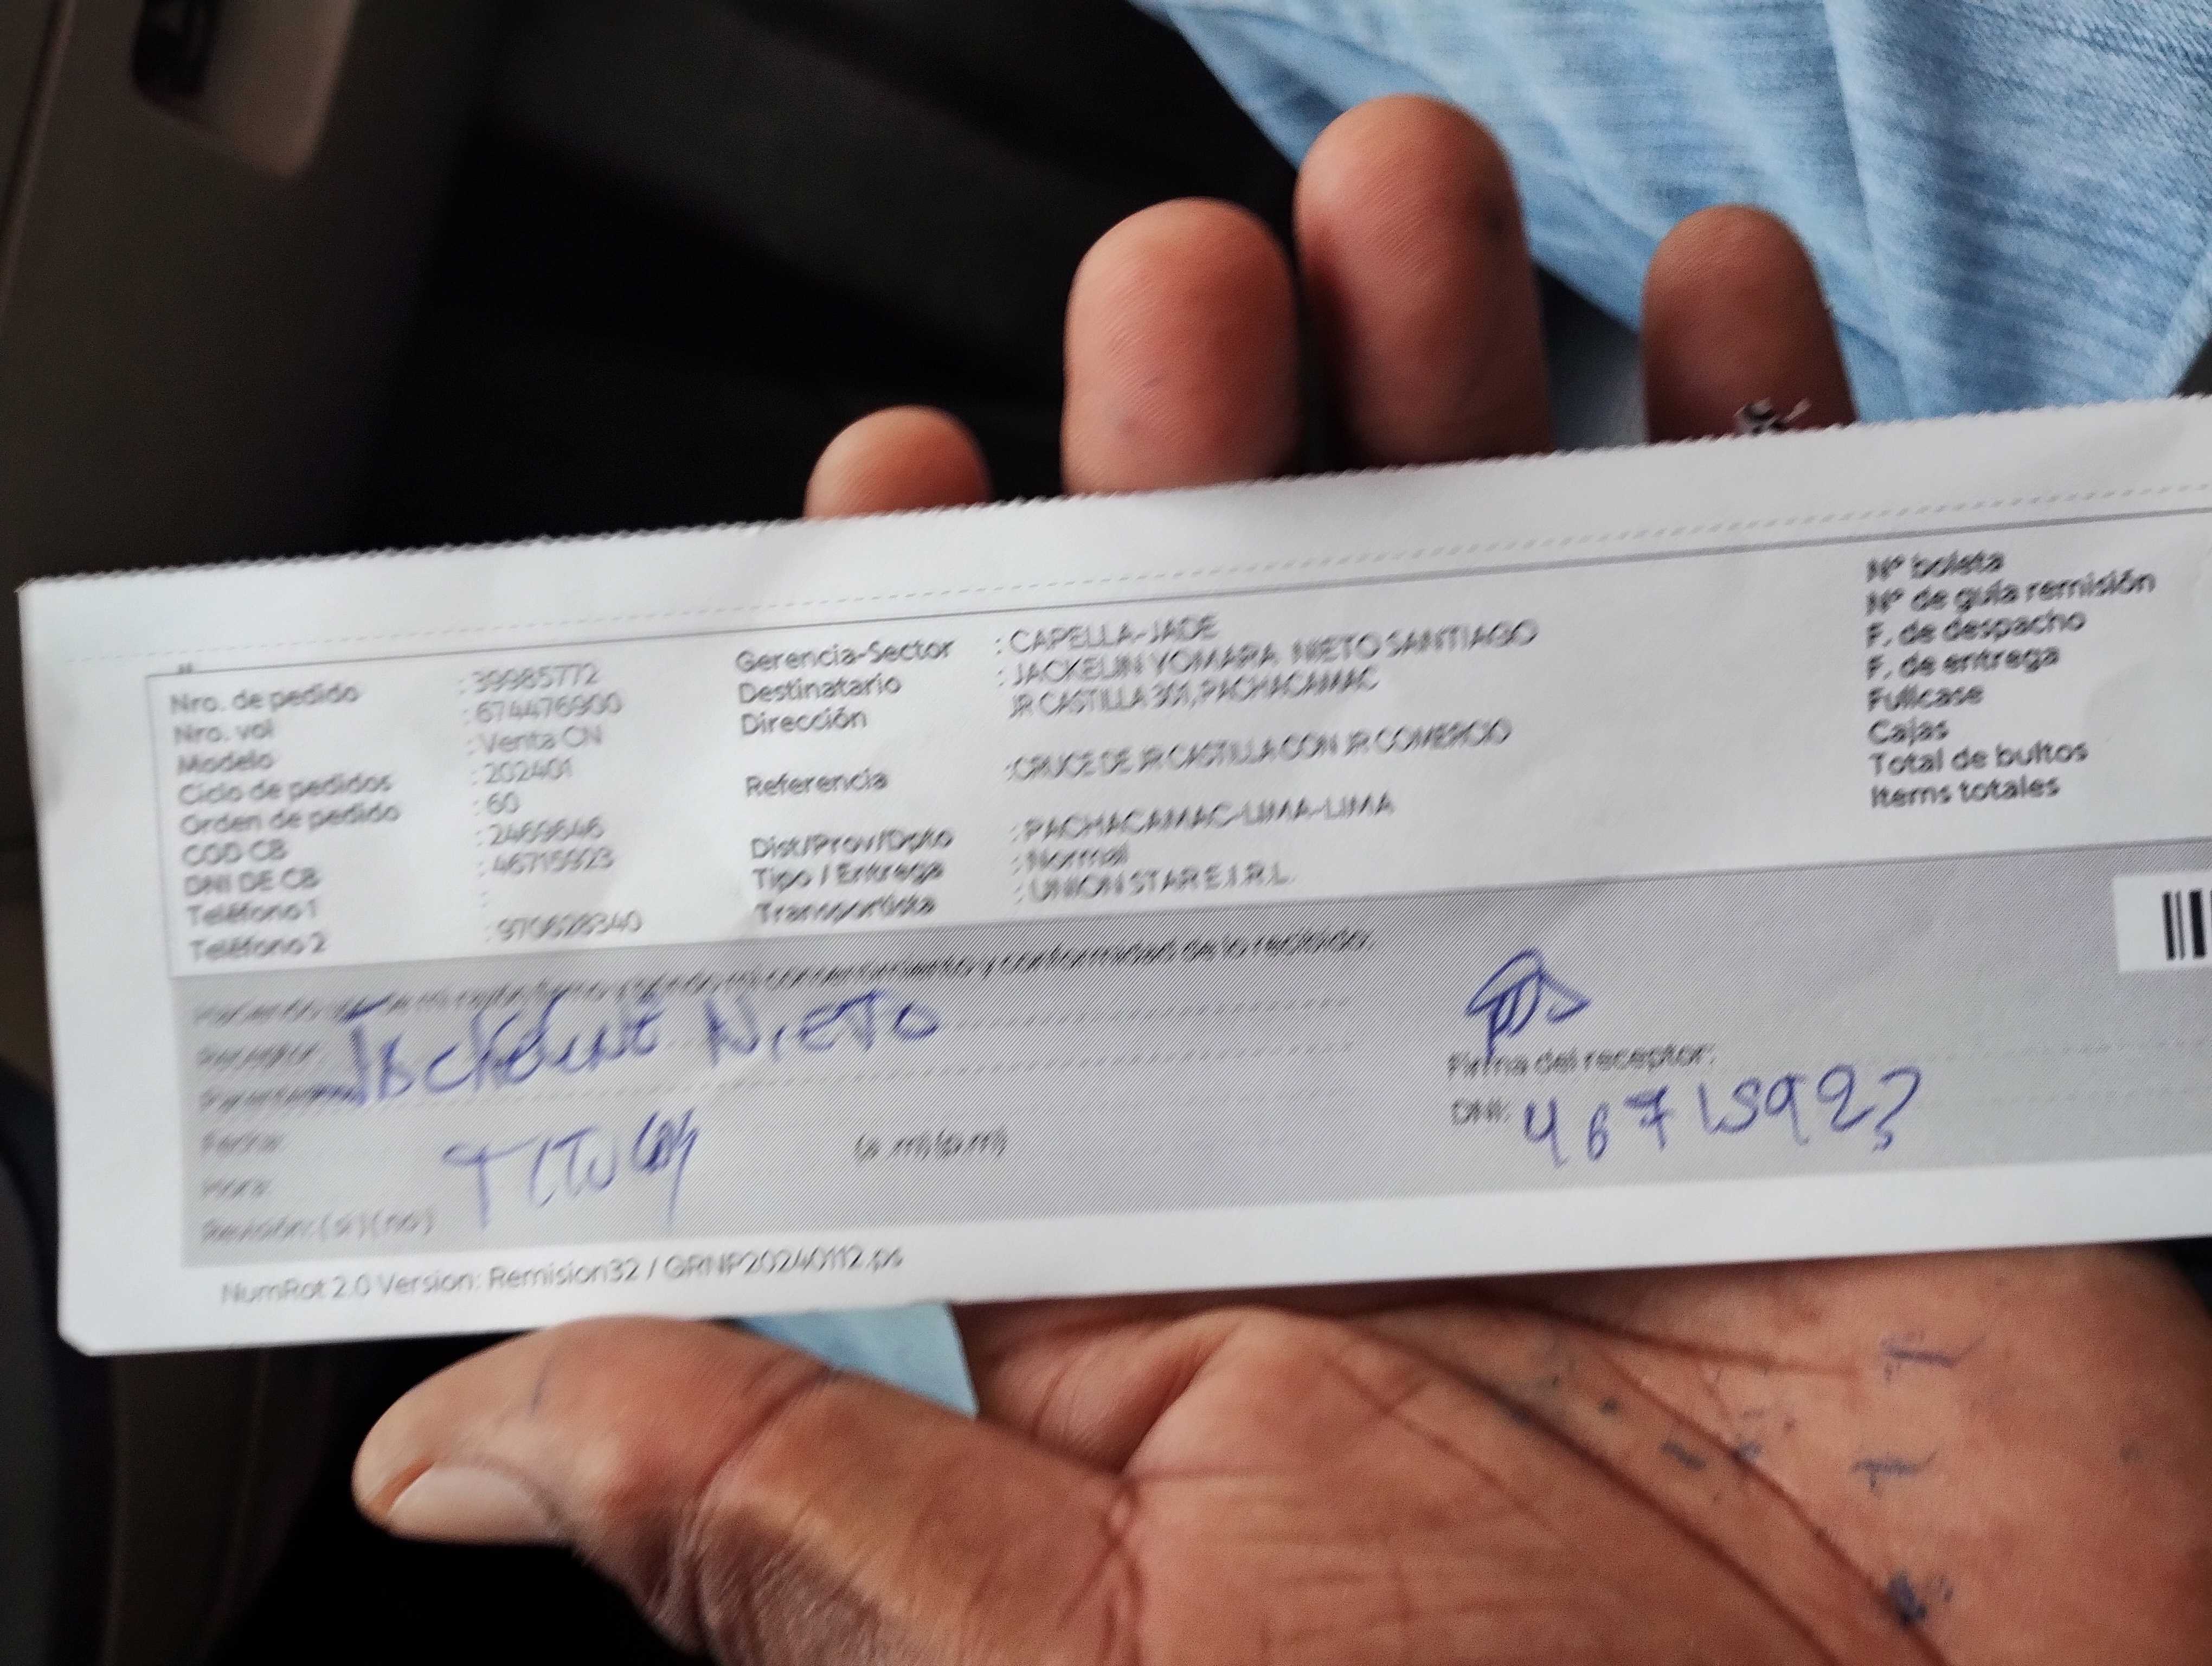 Nro. de pedido : 39985772
Nro. vol : 674476900
Modelo : Venta CN
Ciclo de pedidos : 202401
Orden de pedido : 60
COD CB : 2469646
DNI DE CB : 46715923
Teléfono 1 :
Teléfono 2 : 970628340
Gerencia-Sector : CAPELLA-JADE
Destinatario : JACKELIN YOMARA NIETO SANTIAGO
Dirección JR CASTILLA 301, PACHACAMAC
Referencia : CRUCE DE JR CASTILLA CON JR COMERCIO
Dist/Prov/Dpto : PACHACAMAC-LIMA-LIMA
Tipo / Entrega : Normal
Transportista : UNION STAR E.I.R.L.
Nº boleta
Nº de guía remisión
F. de despacho
F. de entrega
Fullcase
Cajas
Total de bultos
Items totales
consentimiento y conformidad de lo recibido.
Receptor: NIETO
Fecha:
Hora: (a.m)(p.m)
Revisión: (si) (no)
Firma del receptor:
DNI: 46715923
NumRot 2.0 Version: Remision32 / GRNP20240112.ps